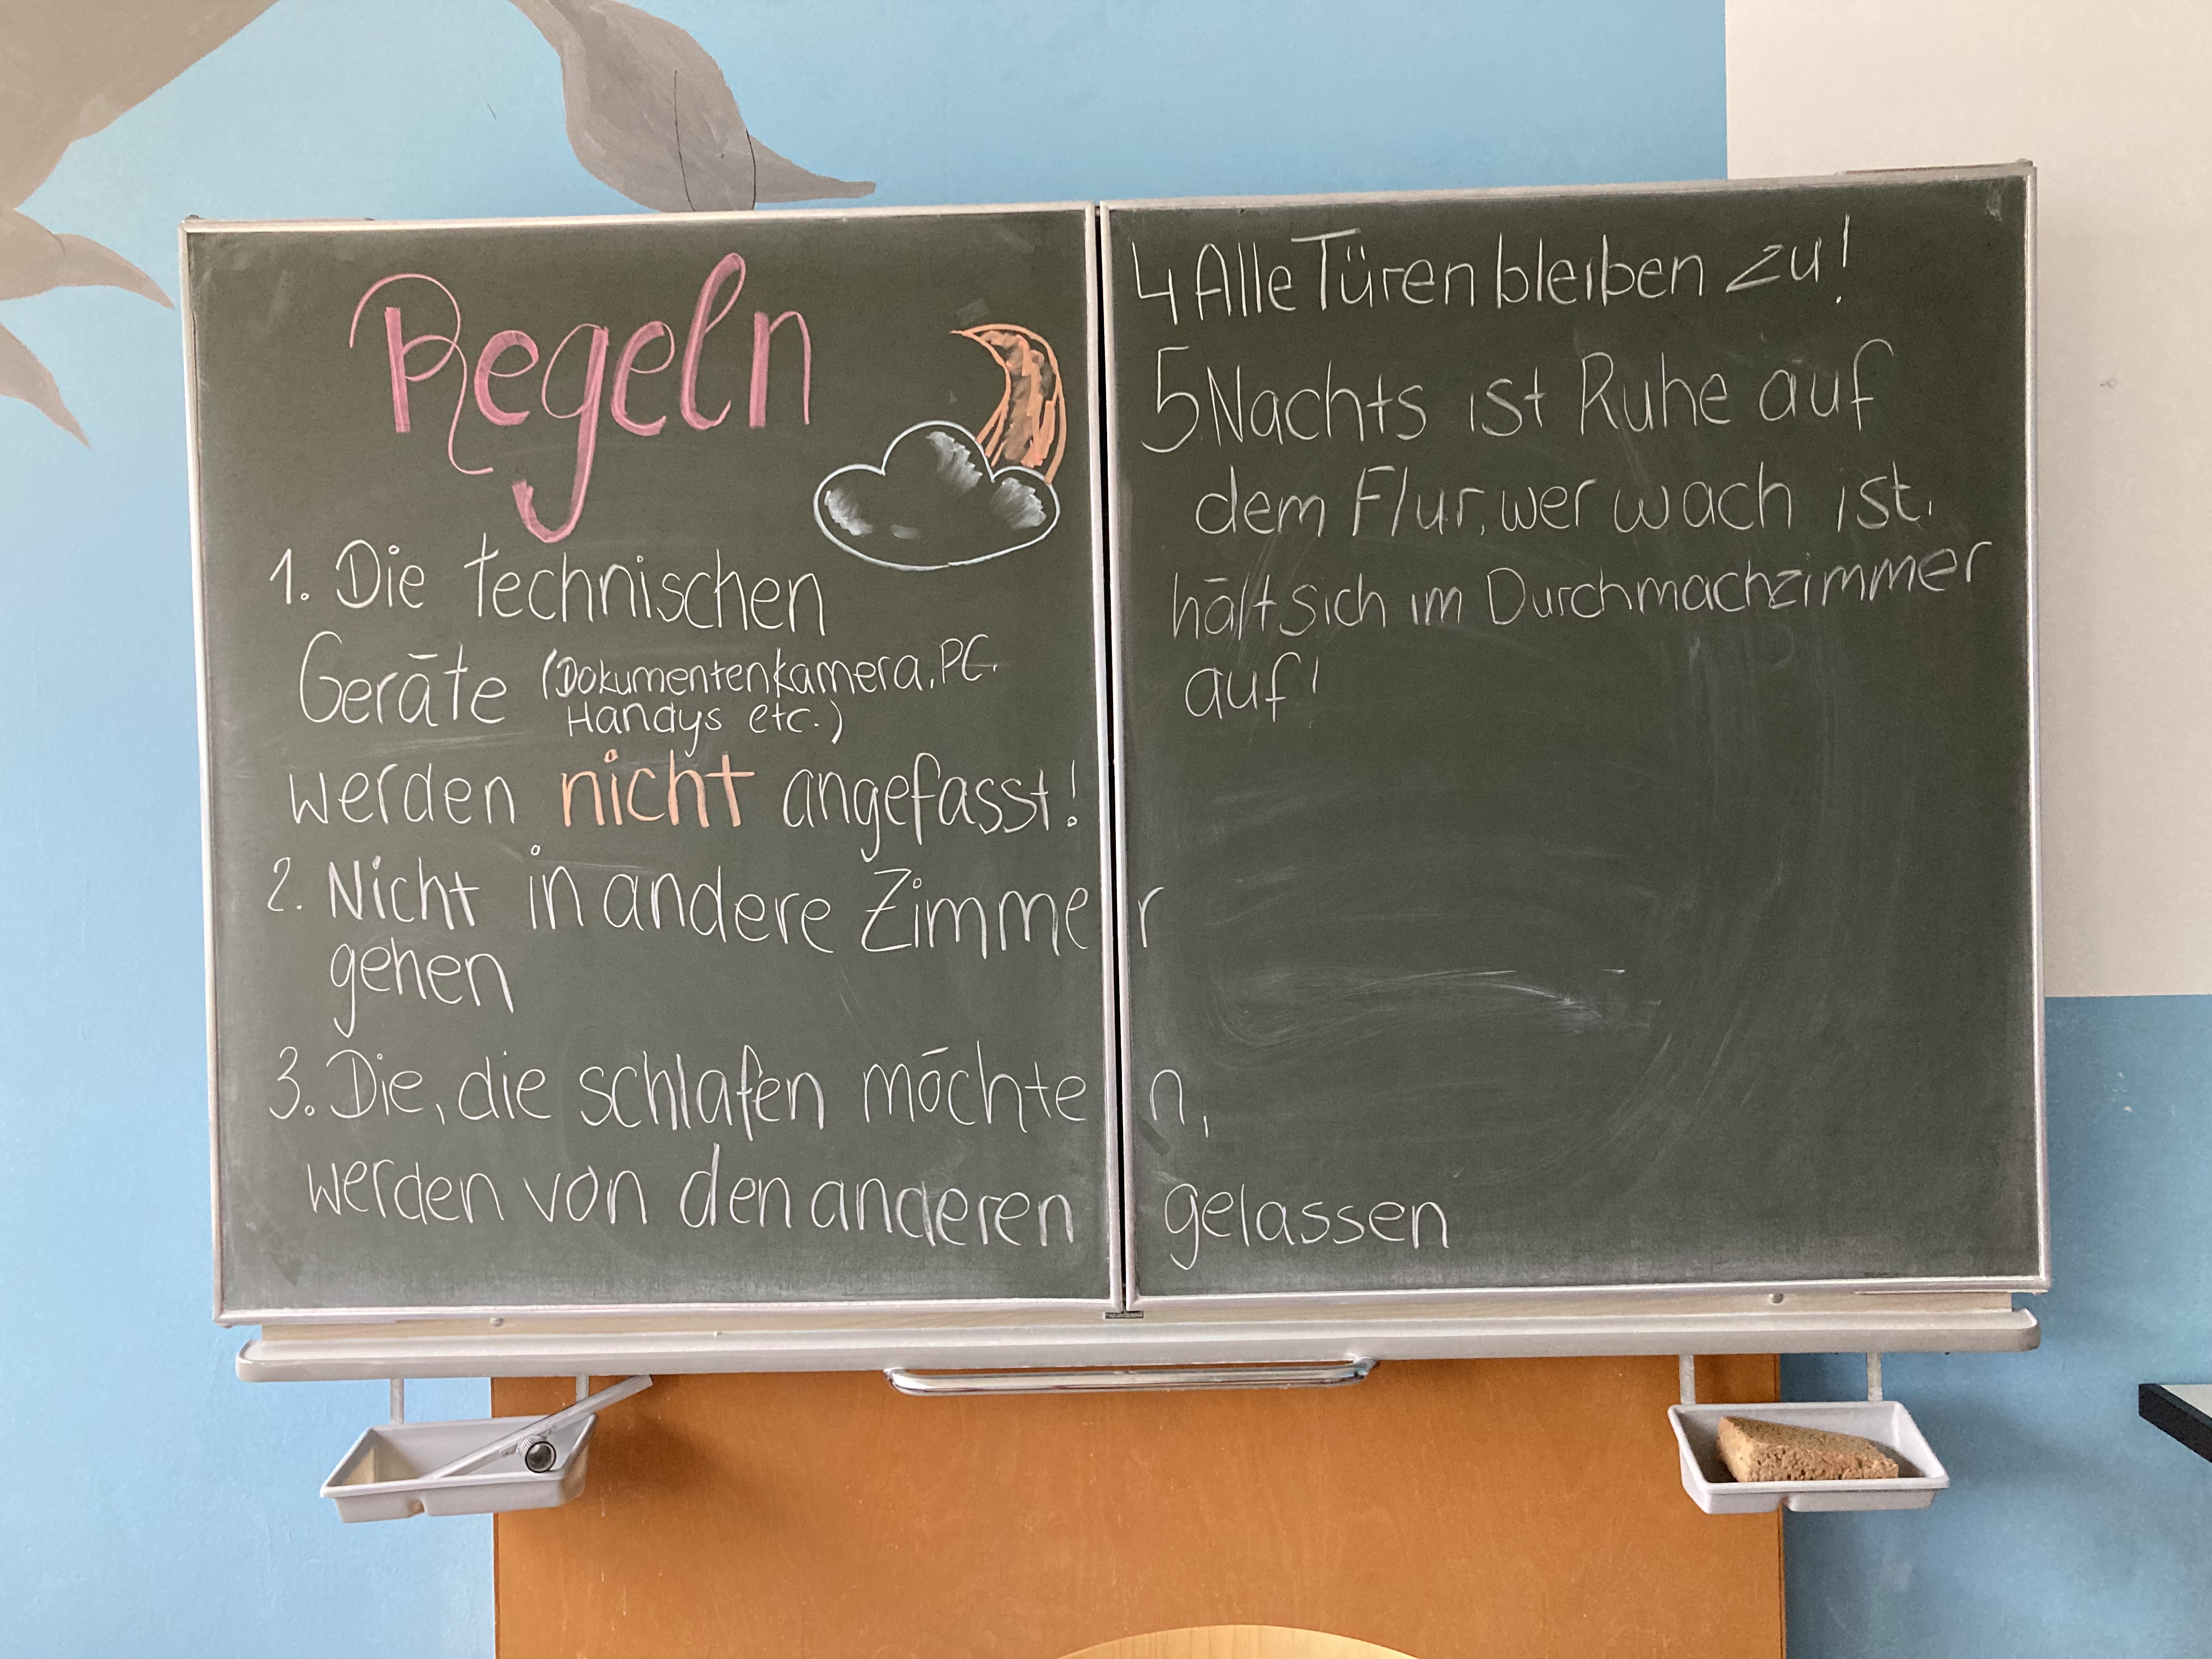 Regeln
1. Die technischen
Geräte (Dokumentenkamera, PC,
Handys etc.)
werden nicht angefasst!
2. Nicht in andere Zimmer
gehen
3. Die, die schlafen möchten,
werden von den anderen gelassen
4 Alle Türen bleiben zu!
5 Nachts ist Ruhe auf
dem Flur, wer wach ist,
hält sich im Durchmachzimmer
auf!